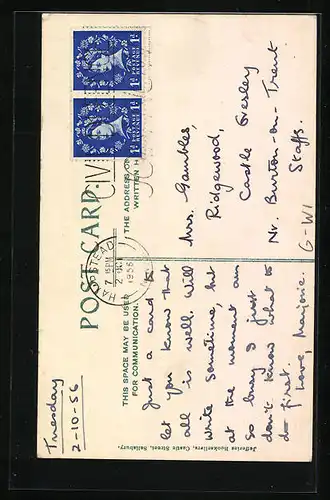 POST CARD
THIS SPACE MAY BE USED
FOR COMMUNICATION.
THE ADDRESS ON
WRITTEN H
HAMPSTEAD
7 15 PM
2 OCT
1956
POSTAGE
REVENUE
1D
1D
POSTAGE
REVENUE
1D
1D
Tuesday
2-10-56
Just a card to
let you know that
all is well. Will
write sometime, but
at the moment am
so busy I just
don't know what to
do first.
Love, Marjorie.
Mrs. Gambles,
Ridgewood,
Castle Gresley
Nr. Burton-on-Trent
Staffs.
G-W1
Jefferies Booksellers, Castle Street, Salisbury.